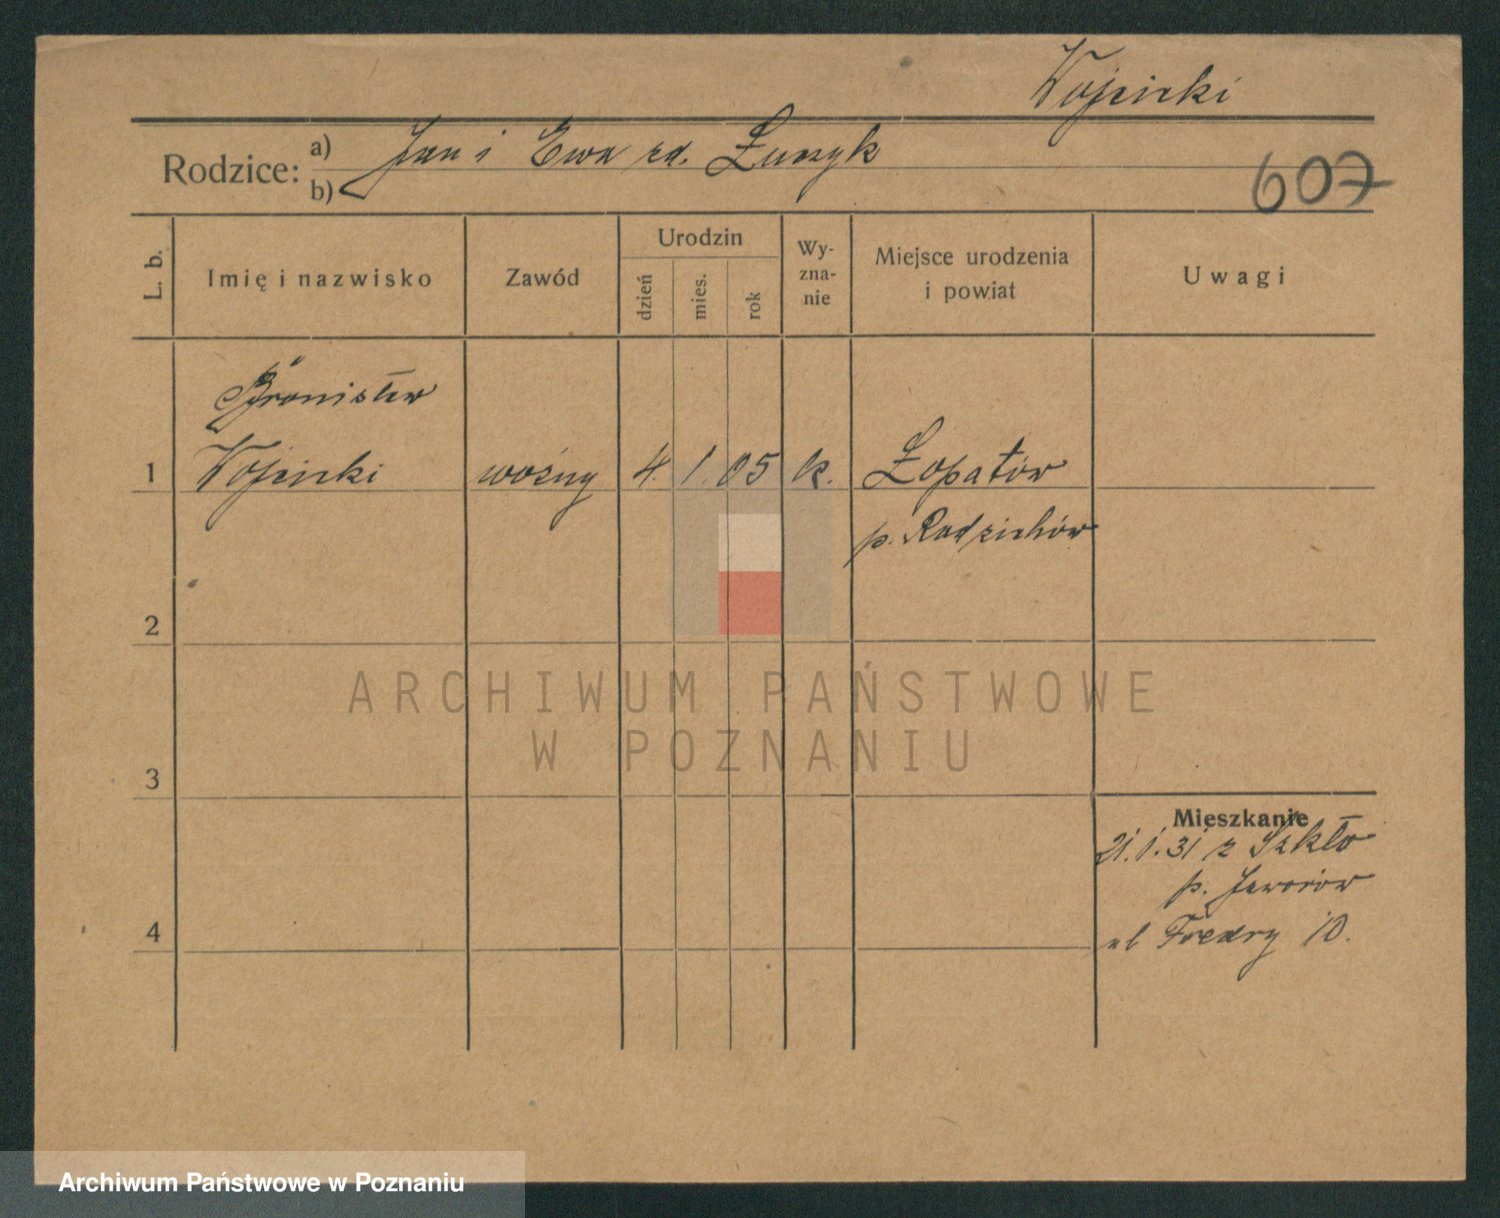 Wojcicki
Rodzice: a) Jan i Ewa zd.
b)
607
L. b.
Imię i nazwisko
Zawód
Urodzin
dzień
mies.
rok
Wy-
zna-
nie
Miejsce urodzenia
i powiat
Uwagi
Bronisław
1 Wojcicki woźny 4. 1. 05 k. Łopatów
p. Radziechów
2
ARCHIWUM PAŃSTWOWE
W POZNANIU
3
Mieszkanie
21.1.31 z Szkło
p. Jaworów
4
ul Fredry 10.
Archiwum Państwowe w Poznaniu